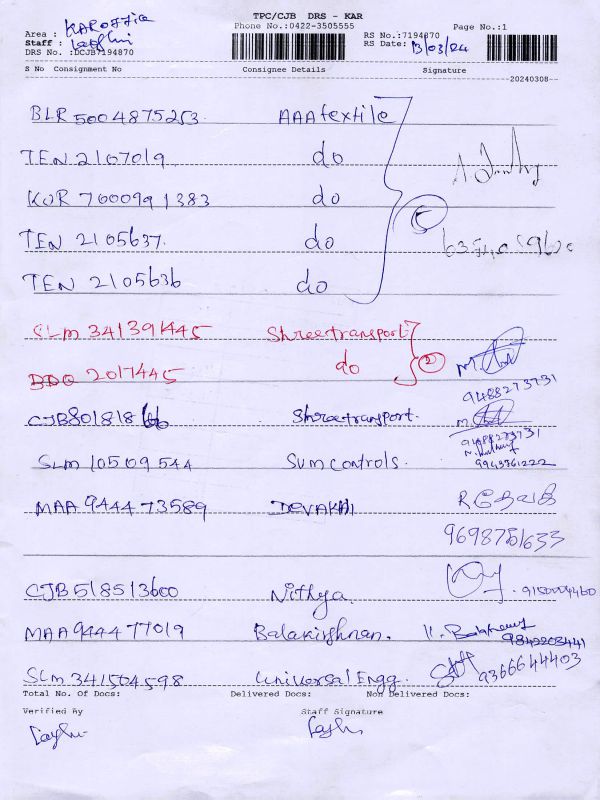 TPC/CJB DRS - KAR
Phone No.:0422-3505555
Page No.:1
Area : KAR OFFICE
RS No.:7194870
Staff :
RS Date: 13/03/24
DRS No. :DCJB7194870
S No Consignment No Consignee Details Signature
20240308
BLR 5004875253 AAA textile
TEN 2107019 do
KUR 7000991383 do
TEN 2105637. do
5
TEN 2105636 do
SLM 341391445 Shree transport
BDQ 2017445 do 2
9488273731
CJB801818 Shree transport.
9488273731
SLM 10509544 Sum controls.
9943361222
MAA 944473589 DEVAKI R தேவகி
CJB 518513600 Nithya. 9150004460
MAA 944477019 Balakirshnan.
9842208441
SLM 341504598 Universal Engg. 9366644403
Total No. Of Docs: Delivered Docs: Non Delivered Docs:
Verified By Staff Signature